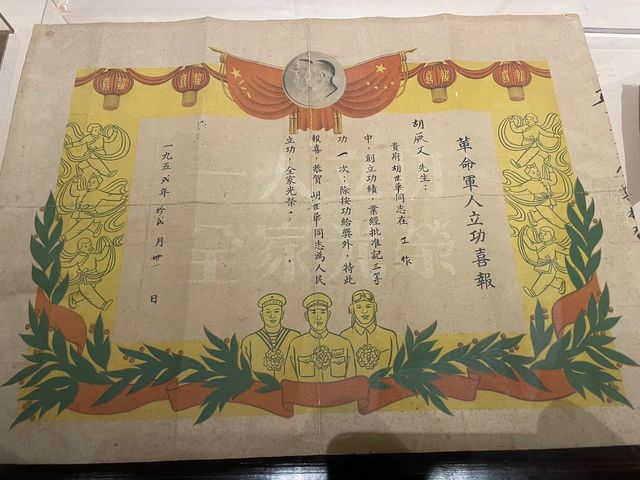 喜報
喜報
喜報
喜報
革命軍人立功喜報
胡厥文 先生:
貴府 胡世華同志在 工作
中,創立功績,業經批准記三等
功一次;除按功給獎外,特此
報喜,恭賀 胡世華同志為人民
立功,全家光榮。
一九五弍年 月 日